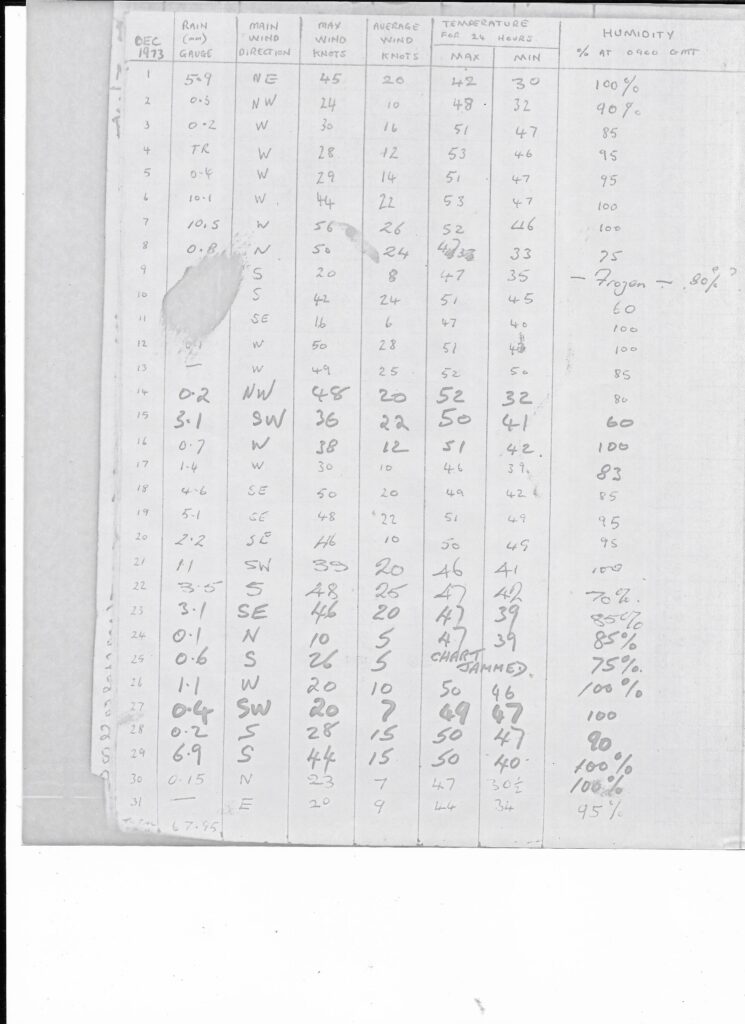 DEC 1973 RAIN (mm) GAUGE MAIN WIND DIRECTION MAX WIND KNOTS AVERAGE WIND KNOTS TEMPERATURE FOR 24 HOURS MAX MIN HUMIDITY % AT 0900 GMT
1 5.9 NE 45 20 42 30 100%
2 0.5 NW 24 10 48 32 90%
3 0.2 W 30 16 51 47 85
4 TR W 28 12 53 46 95
5 0.4 W 29 14 51 47 95
6 10.1 W 44 22 53 47 100
7 10.5 W 56 26 52 46 100
8 0.8 N 50 24 33 75
9 S 20 8 47 35 — Frozen — 80%?
10 S 42 24 51 45 60
11 SE 16 6 47 40 100
12 W 50 28 51 100
13 — W 49 25 52 50 85
14 0.2 NW 48 20 52 32 80
15 3.1 SW 36 22 50 41 60
16 0.7 W 38 12 51 42 100
17 1.4 W 30 10 46 39 83
18 4.6 SE 50 20 49 42 85
19 5.1 SE 48 22 51 49 95
20 2.2 SE 46 10 50 49 95
21 1.1 SW 39 20 46 41 100
22 3.5 S 48 25 47 42 70%
23 3.1 SE 46 20 47 39 85%
24 0.1 N 10 5 47 39 85%
25 0.6 S 26 5 CHART JAMMED. 75%
26 1.1 W 20 10 50 46 100%
27 0.4 SW 20 7 49 47 100
28 0.2 S 28 15 50 47 90
29 6.9 S 44 15 50 40 100%
30 0.15 N 23 7 47 30½ 100%
31 — E 20 9 44 34 95%
TOTAL 67.95